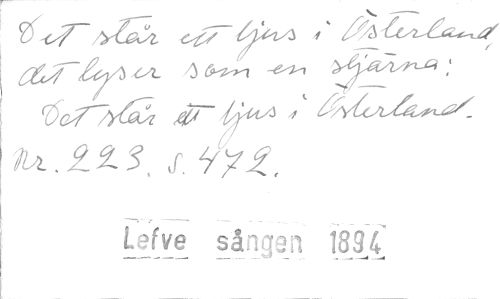 Det står ett ljus i Österland,
det lyser som en stjärna:
Det står ett ljus i Österland.
Nr. 223. s. 472.
Lefve sången 1894